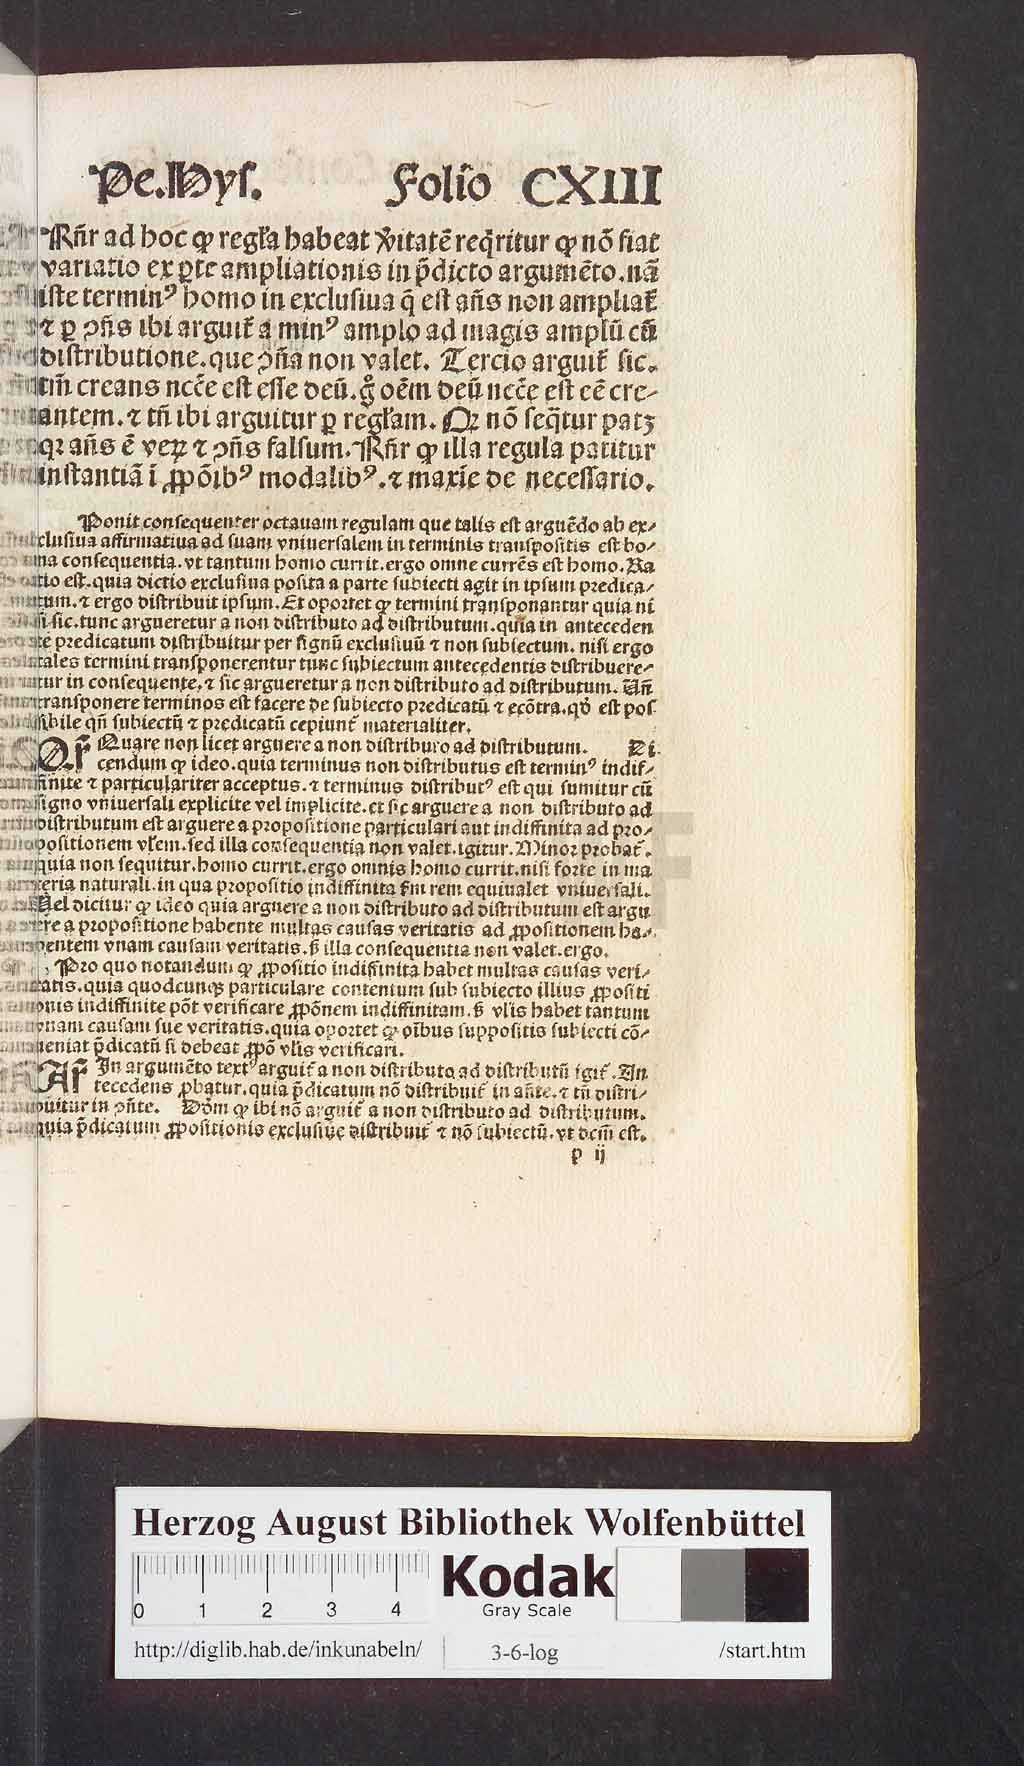 Pe.Hys. Folio CXIII
Rñr ad hoc ꝙ regła habeat v̓itatē req̄ritur ꝙ nō fiat
variatio ex ꝑte ampliationis in p̄dicto argumēto.nā
iste terminꝰ homo in exclusiua q̄ est añs non ampliat᷑
⁊ ꝑ ꝯñs ibi arguit᷑ a minꝰ amplo ad magis amplū cū
distributione.que ꝯña non valet. Tercio arguit᷑ sic.
tm̄ creans ncc̄e est esse deū.g̊ oēm deū necc̄e est eē cre⸗
antem.⁊ tñ ibi arguitur ꝑ regłam. Qꝛ nō seq̄tur patꝫ
qꝛ añs ē veꝝ ⁊ ꝯñs falsum. Rñr ꝙ illa regula patitur
instantiā ī ꝓpōibꝰ modalibꝰ.⁊ maxīe de necessario.
Ponit consequenter octauam regulam que talis est arguēdo ab ex⸗
clusiua affirmatiua ad suam vniuersalem in terminis transpositis est bo⸗
na consequentia.vt tantum homo currit.ergo omne currēs est homo. Ra
tio est.quia dictio exclusiua posita a parte subiecti agit in ipsum predica⸗
tum.⁊ ergo distribuit ipsum. Et oportet ꝙ termini transponantur quia ni
si sic.tunc argueretur a non distributo ad distributum.quia in anteceden
te predicatum distribuitur per signū exclusiuū ⁊ non subiectum. nisi ergo
tales termini transponerentur tunc subiectum antecedentis distribuere⸗
tur in consequente.⁊ sic argueretur a non distributo ad distributum. Uñ
transponere terminos est facere de subiecto predicatū ⁊ ecōtra.qd̓ est pos
sibile qñ subiectū ⁊ predicatū cepiunt᷑ materialiter.
Qr̄ Quare non licet arguere a non distributo ad distributum. Di
cendum ꝙ ideo.quia terminus non distributus est terminꝰ indif⸗
finite ⁊ particulariter acceptus.⁊ terminus distributꝰ est qui sumitur cū
signo vniuersali explicite vel implicite.et sic arguere a non distributo ad
distributum est arguere a propositione particulari aut indiffinita ad pro⸗
positionem vłem.sed illa consequentia non valet.igitur. Minor probat᷑.
quia non sequitur.homo currit.ergo omnis homo currit.nisi forte in ma
teria naturali.in qua propositio indiffinita fm rem equiualet vniuersali.
Uel dicitur ꝙ ideo quia arguere a non distributo ad distributum est argu
ere a propositione habente multas causas veritatis ad ꝓpositionem ha⸗
bentem vnam causam veritatis.ß illa consequentia non valet.ergo.
Pro quo notandum ꝙ ꝓpositio indiffinita habet multas causas veri⸗
tatis.quia quodcunqꝫ particulare contentum sub subiecto illius ꝓpositi
onis indiffinite pōt verificare ꝓpōnem indiffinitam.ß vlis habet tantum
vnam causam sue veritatis.quia oportet ꝙ oībus suppositis subiecti cō⸗
ueniat p̄dicatū si debeat ꝓpō vlis verificari.
Ar̄ In argumēto textꝰ arguit᷑ a non distributo ad distributū igit᷑. An
tecedens ꝓbatur.quia p̄dicatum nō distribuit᷑ in añte.⁊ tñ distri⸗
buitur in ꝯñte. Dōm ꝙ ibi nō arguit᷑ a non distributo ad distributum.
quia p̄dicatum ꝓpositionis exclusiue distribuit᷑ ⁊ nō subiectū.vt dcm̄ est.
p ij
Herzog August Bibliothek Wolfenbüttel
0 1 2 3 4
Kodak
Gray Scale
http://diglib.hab.de/inkunabeln/ 3-6-log /start.htm